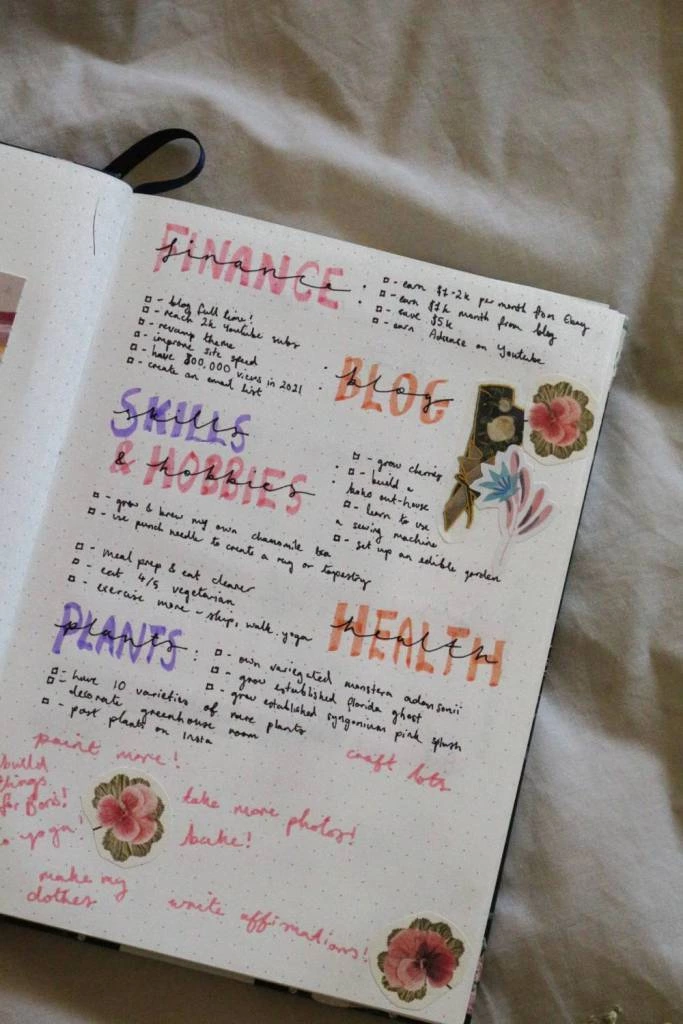 FINANCE
finance
□ - earn $1-2k per month from Ebay
□ - earn $1k month from blog
□ - save $5k
□ - earn Advance on Youtube
□ - blog full time!
□ - reach 2k Youtube subs
□ - revamp theme
□ - improve site speed
□ - have 800,000 views in 2021
□ - create an email list
BLOG
blog
SKILLS
skills
& HOBBIES
& hobbies
□ - grow cherries
□ - build a
out-house
□ - learn to use
a sewing machine
□ - set up an edible garden
□ - grow & brew my own chamomile tea
□ - use punch needle to create a rug or tapestry
□ - meal prep & eat cleaner
□ - eat 4/5 vegetarian
□ - exercise more - skip, walk, yoga
HEALTH
health
PLANTS
plants
□ - own variegated monstera adansonii
□ - grow established florida ghost
□ - grow established syngonium pink splash
□ - have 10 varieties of more plants
decorate greenhouse room
□ - post plants on Insta
paint more!
craft lots
build
things
for Boris!
yoga!
take more photos!
bake!
make my
clothes
write affirmations!